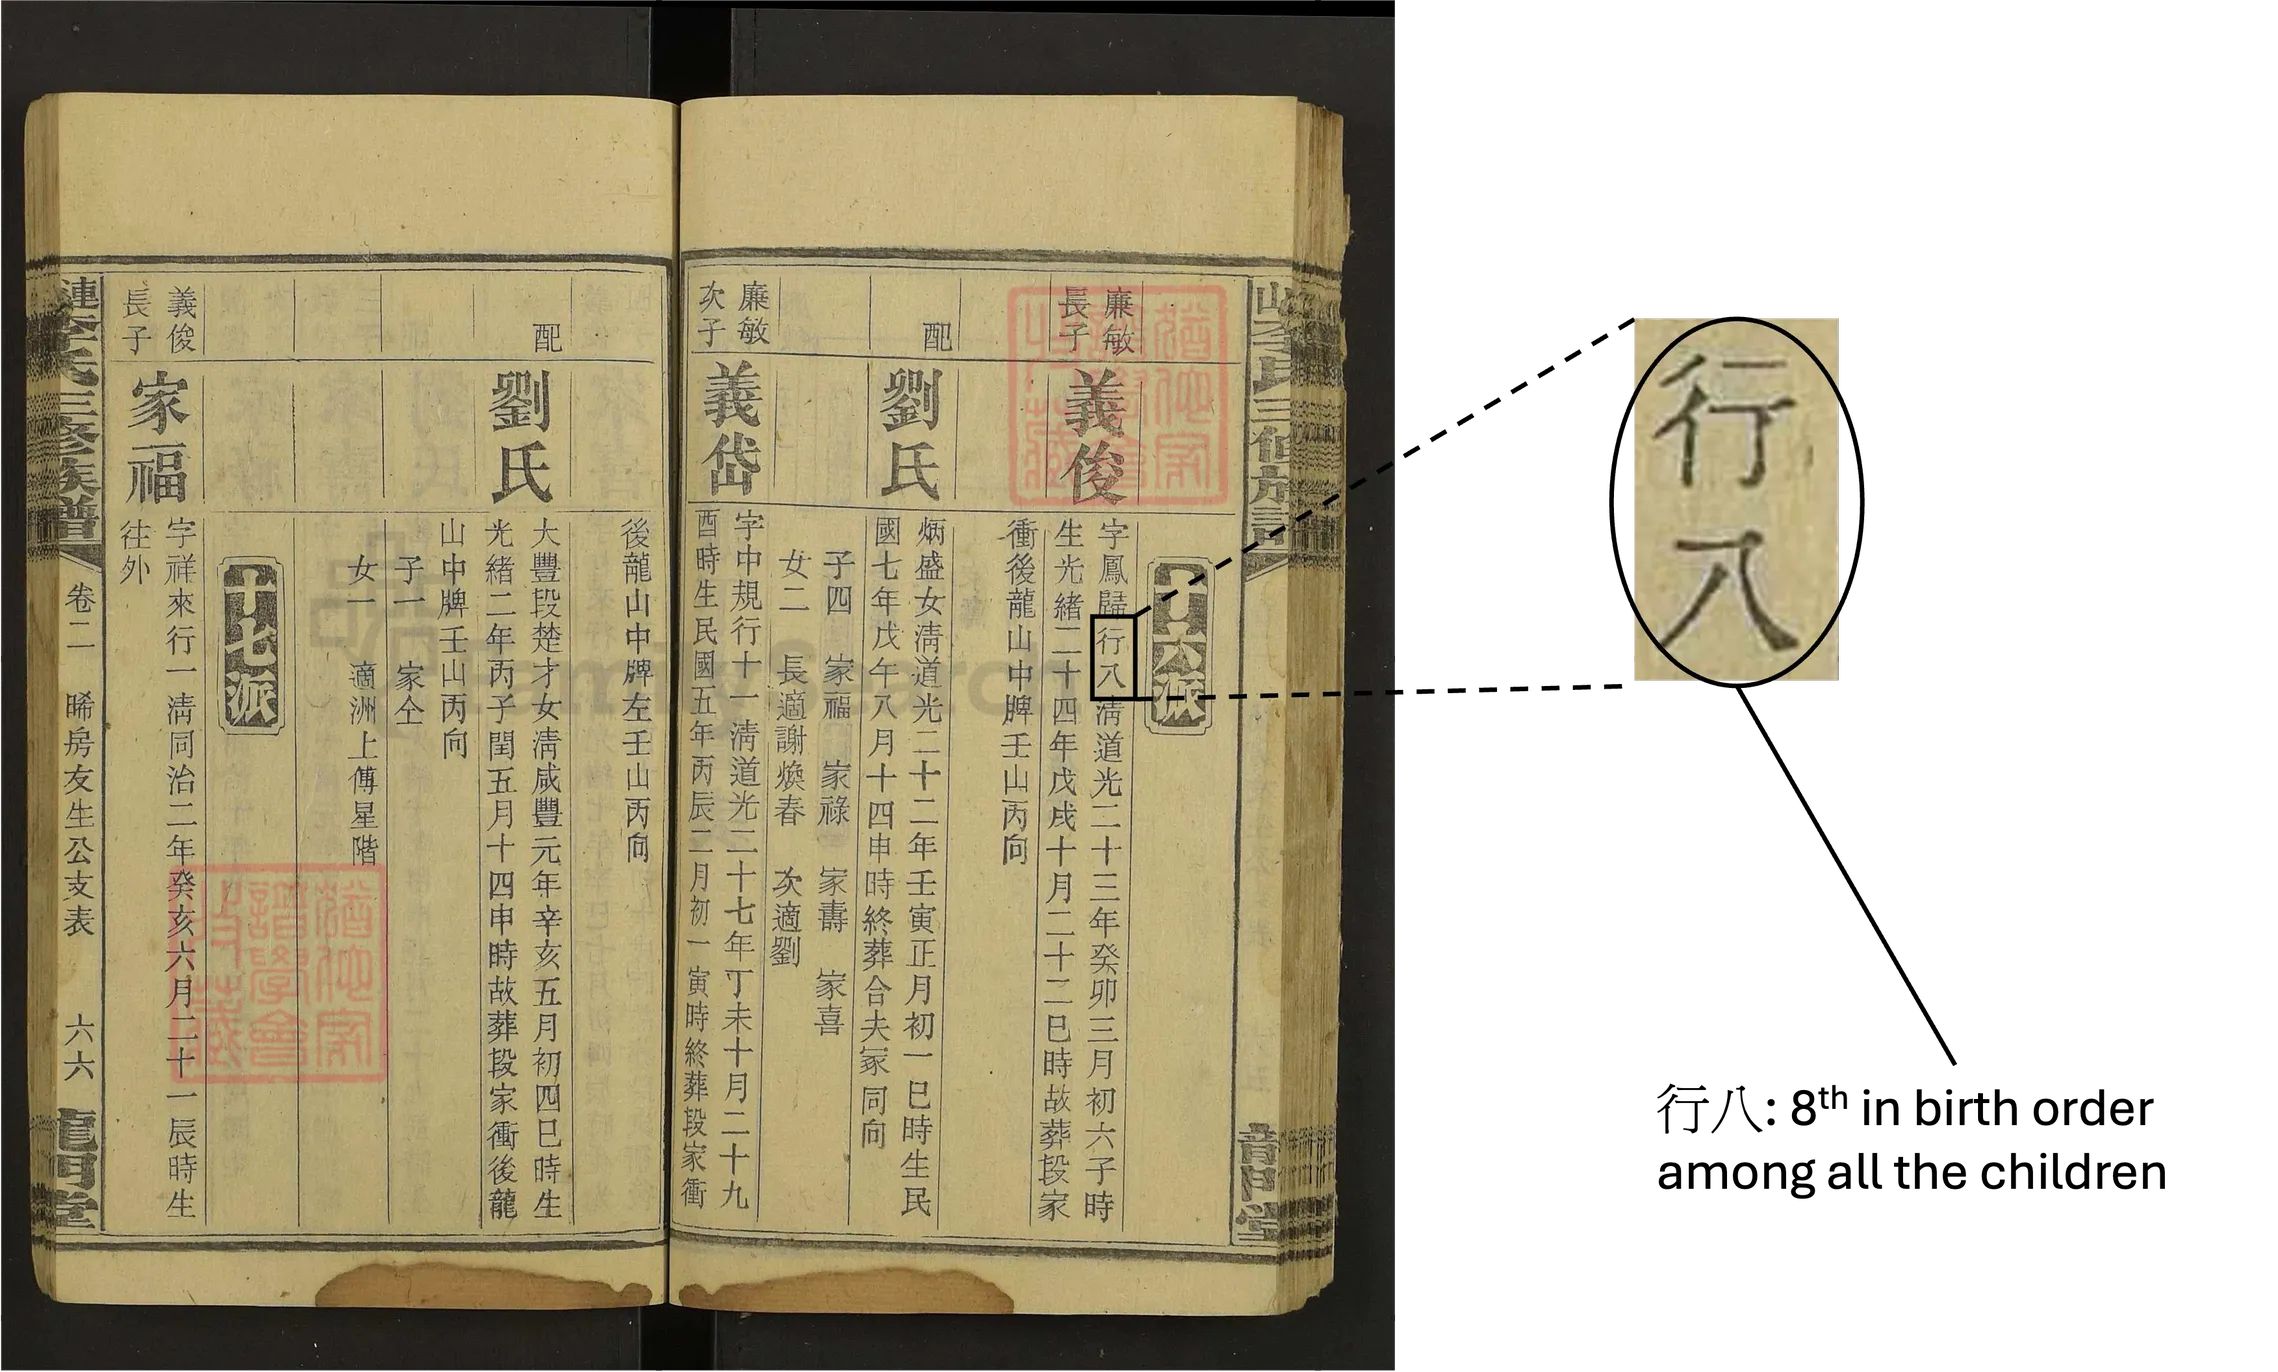 十六派
廉敏
長子
義俊
字鳳歸行八清道光二十三年癸卯三月初六子時
生光緒二十四年戊戌十月二十二巳時故葬段家
衝後龍山中牌壬山丙向
配
劉氏
炳盛女清道光二十二年壬寅正月初一巳時生民
國七年戊午八月十四申時終葬合夫冢同向
子四 家福 家祿 家壽 家喜
女二 長適謝煥春 次適劉
廉敏
次子
義岱
字中規行十一清道光二十七年丁未十月二十九
酉時生民國五年丙辰二月初一寅時終葬段家衝
後龍山中牌左壬山丙向
配
劉氏
大豐段楚才女清咸豐元年辛亥五月初四巳時生
光緒二年丙子閏五月十四申時故葬段家衝後龍
山中牌壬山丙向
子一 家仝
女一 適洲上傅星階
十七派
義俊
長子
家福
字祥來行一清同治二年癸亥六月二十一辰時生
往外
漣李氏三修族譜
卷二
晞房友生公支表
六六
龍門堂
FamilySearch
行八
行八: 8th in birth order
among all the children